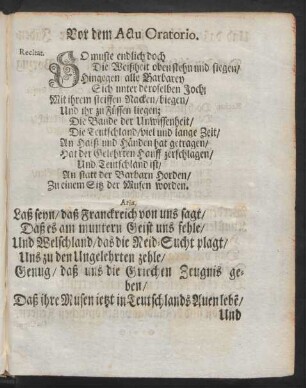 Vor dem Actu Oratorio.
Recitat.
SO muste endlich doch
Die Weißheit oben stehn und siegen/
Hingegen alle Barbarey
Sich unter deroselben Joch/
Mit ihrem steiffen Nacken/ biegen/
Und ihr zu Füssen liegen;
Die Bande der Unwissenheit/
Die Teutschland/ viel und lange Zeit/
An Halß und Händen hat getragen/
Hat der Gelehrten Hauff zerschlagen/
Und Teutschland ist/
An statt der Barbarn Horden/
Zu einem Sitz der Musen worden.
Aria.
Laß seyn/ daß Franckreich von uns sagt/
Daß es am muntern Geist uns fehle/
Und Welschland/ das die Neid-Sucht plagt/
Uns zu den Ungelehrten zehle/
Genug/ daß uns die Griechen Zeugnis ge-
ben/
Daß ihre Musen ietzt in Teutschlands Auen lebē/
Und